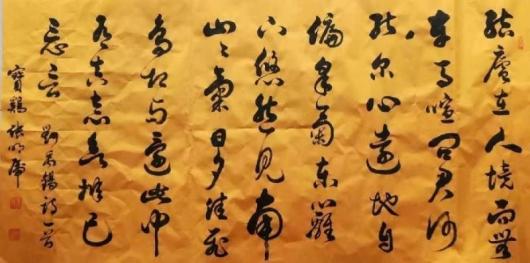 結廬在人境而無
車馬喧問君何
能尔心遠地自
偏采菊東籬
下悠然見南
山山氣日夕佳飛
鳥相与還此中
有真意欲辨已
忘言 詩一首
寶鷄張明虎